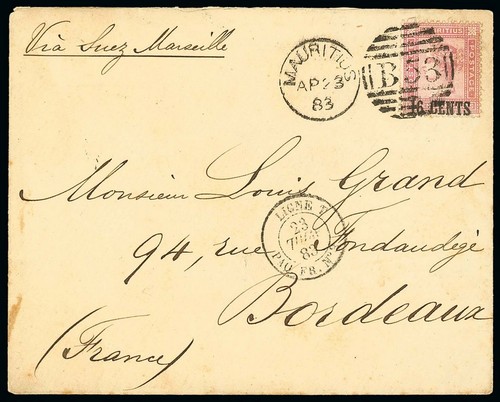 Viâ Suez Marseille
MAURITIUS
AP 23
83
B53
MAURITIUS
16 CENTS
Monsieur Louis Grand
LIGNE T
23
83
PAQ. FR. Nº
94, rue Fondaudège
Bordeaux
(France)